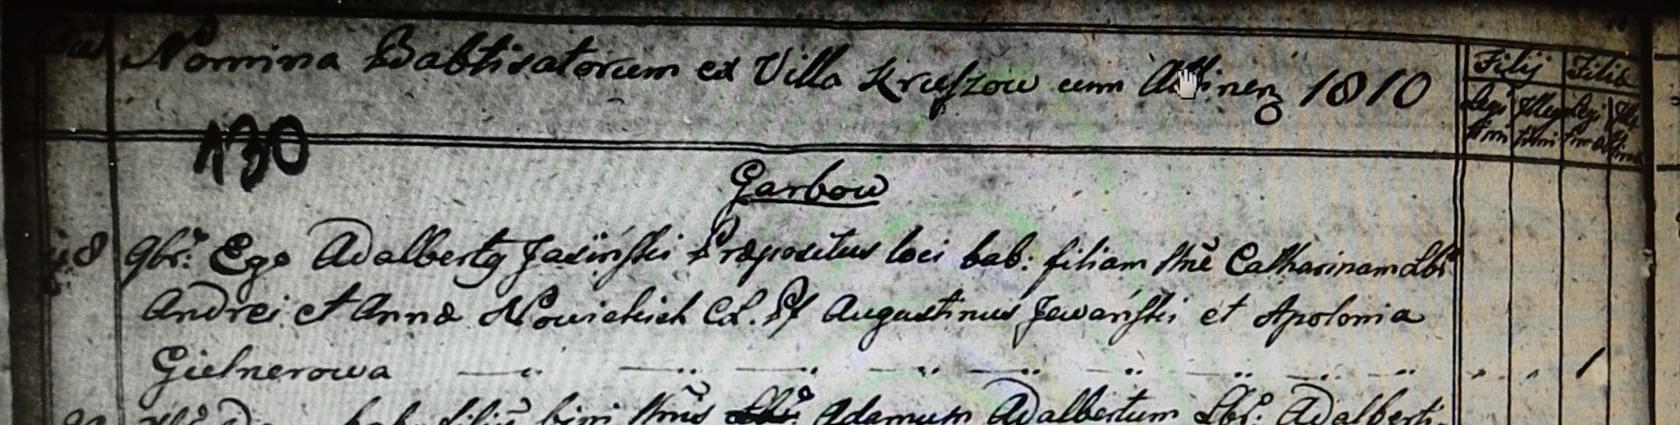 Nomina Babtisatorum ex Villa Kruszow cum Attinen 1810
Filij Filiæ
Legi Illegi Legi Ille
tim timi tim
130
Garbow
8 9br: Ego Adalbertq Jasiński Præpositus loci bab: filiam Nnē Catharinam Lbr
Andrei et Annæ Nowickich Cd. Pf Augustinus Jewański et Apolonia
Gielnerowa 1
bab: filiū bini Nnūs Adamum Adalbertum Lbr: Adalberti